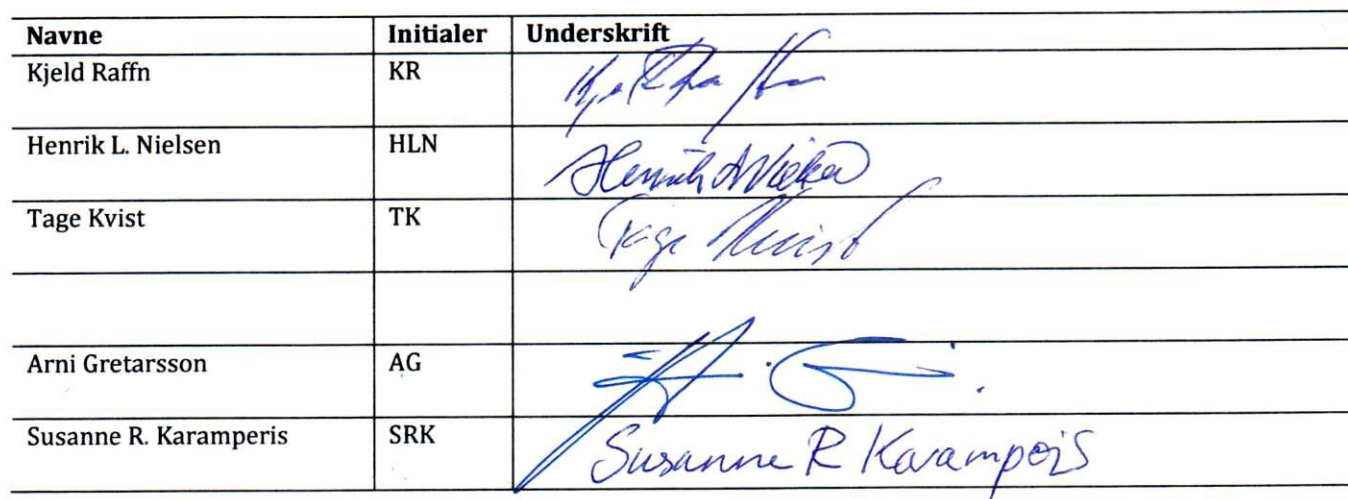 Navne Initialer Underskrift
Kjeld Raffn KR
Henrik L. Nielsen HLN Henrik
Tage Kvist TK Tage Kvist
Arni Gretarsson AG
Susanne R. Karamperis SRK Susanne R Karamperis